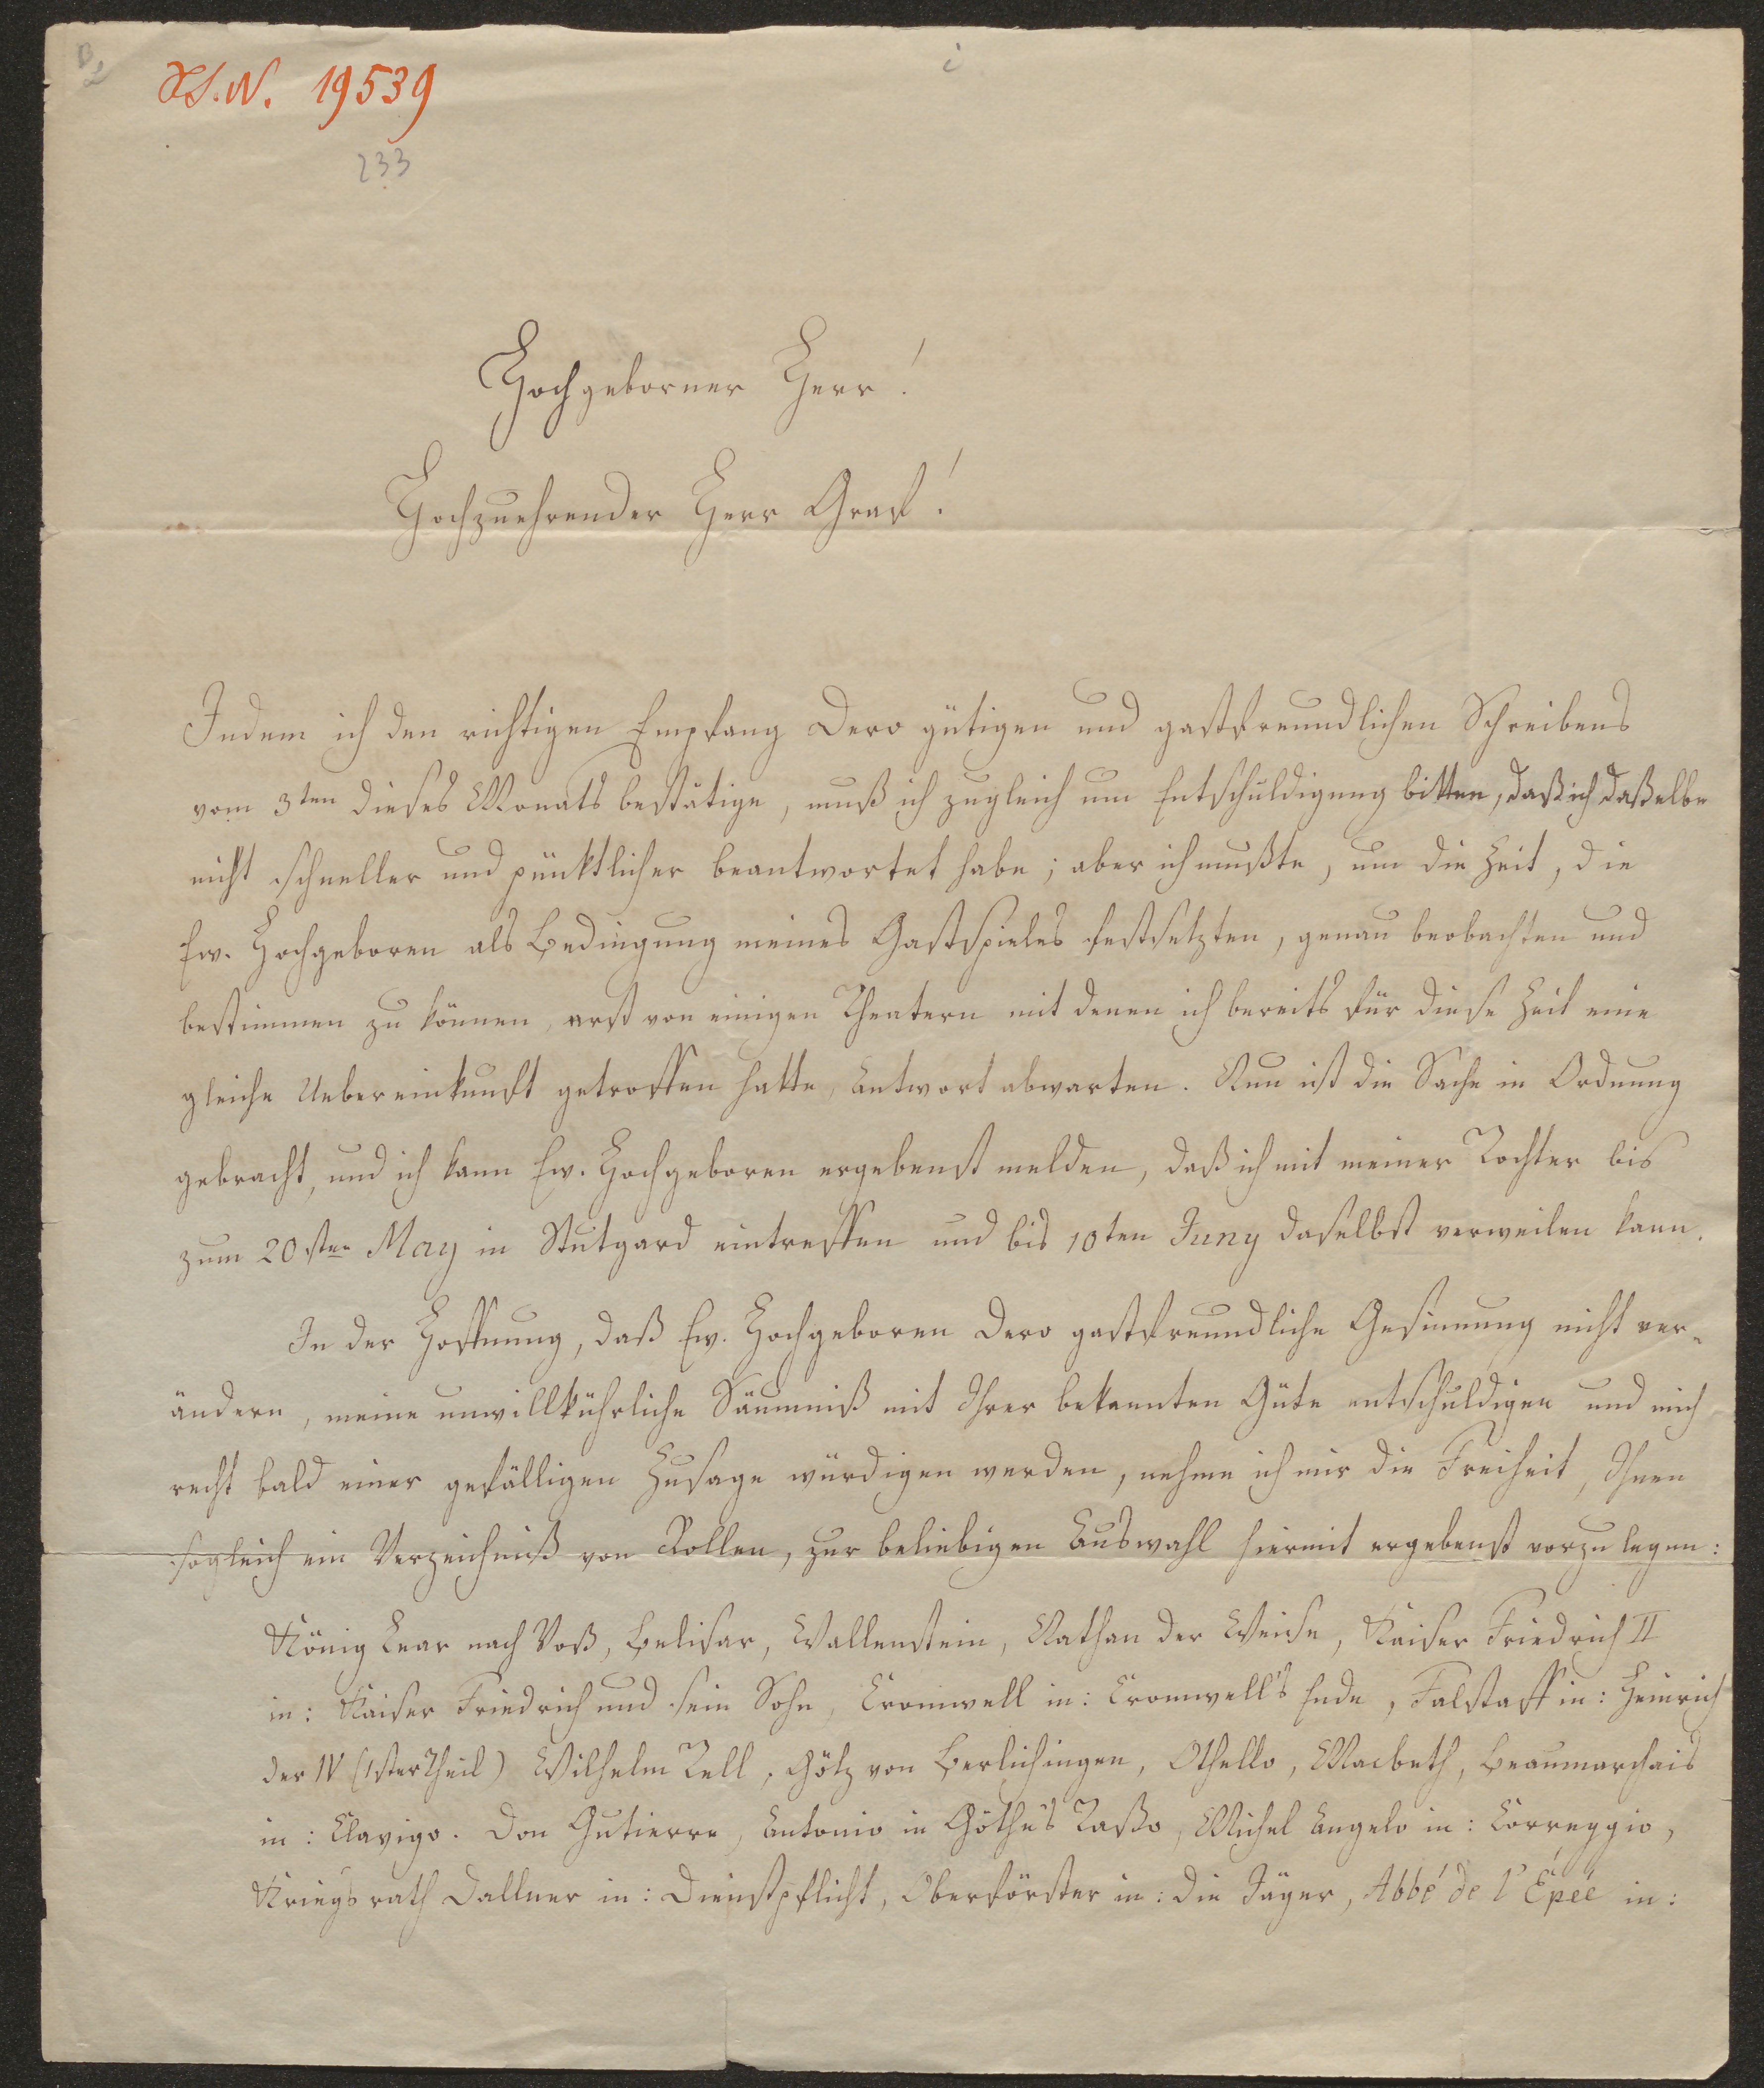 H.S.N. 19539
233
Hochgeborner Herr!
Hochzuehrender Herr Graf!
Indem ich den richtigen Empfang Dero gütigen und gastfreundlichen Schreibens
vom 3ten dieses Monats bestätige, muß ich zugleich um Entschuldigung bitten, daß ich daßelbe
nicht schneller und pünktlicher beantwortet habe; aber ich mußte, um die Zeit, die
Ew. Hochgeboren als Bedingung meines Gastspieles festsetzten, genau beobachten und
bestimmen zu können, erst von einigen Theatern mit denen ich bereits für diese Zeit eine
gleiche Uebereinkunft getroffen hatte, Antwort abwarten. Nun ist die Sache in Ordnung
gebracht, und ich kann Ew. Hochgeboren ergebenst melden, daß ich mit meiner Tochter bis
zum 20sten May in Stutgard eintreffen und bis 10ten Juny daselbst verweilen kann.
In der Hoffnung, daß Ew. Hochgeboren Dero gastfreundliche Gesinnung nicht ver-
ändern, meine unwillkührliche Säumniß mit Ihrer bekannten Güte entschuldigen und mich
recht bald einer gefälligen Zusage würdigen werden, nehme ich mir die Freiheit, Ihnen
sogleich ein Verzeichniß von Rollen, zur beliebigen Auswahl hiermit ergebenst vorzulegen:
König Lear nach Voß, Belisar, Wallenstein, Nathan der Weise, Kaiser Friedrich II
in: Kaiser Friedrich und sein Sohn, Cromwell in: Cromwell's Ende, Falstaff in: Heinrich
der IV (1ster Theil) Wilhelm Tell, Götz von Berlichingen, Othello, Macbeth, Beaumarchais
in: Clavigo. Don Gutierre, Antonio in Göthe's Taßo, Michel Angelo in: Correggio,
Kriegsrath Dallner in: Dienstpflicht, Oberförster in: die Jäger, Abbé de l'Épeé in: